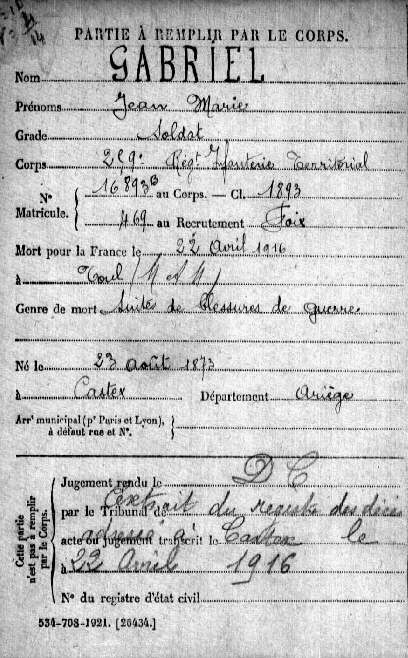 PARTIE À REMPLIR PAR LE CORPS.
Nom GABRIEL
Prénoms Jean Marie
Grade Soldat
Corps Régt Infanterie Territorial
N° Matricule. { 16893 au Corps. — Cl. 1893
469 au Recrutement Foix
Mort pour la France le 22 Avril 1916
à Toul (M et M)
Genre de mort Suite de Blessures de guerre
Né le 23 Août 1873
à Castex Département Ariège
Arrt municipal (pr Paris et Lyon), à défaut rue et N°. }
Cette partie n'est pas à remplir par le Corps.
Jugement rendu le D C
par le Tribunal de Extrait du registre des décès
acte ou jugement transcrit le adressé à Castex le
à 22 Avril 1916
N° du registre d'état civil
534-708-1921. [26434.]